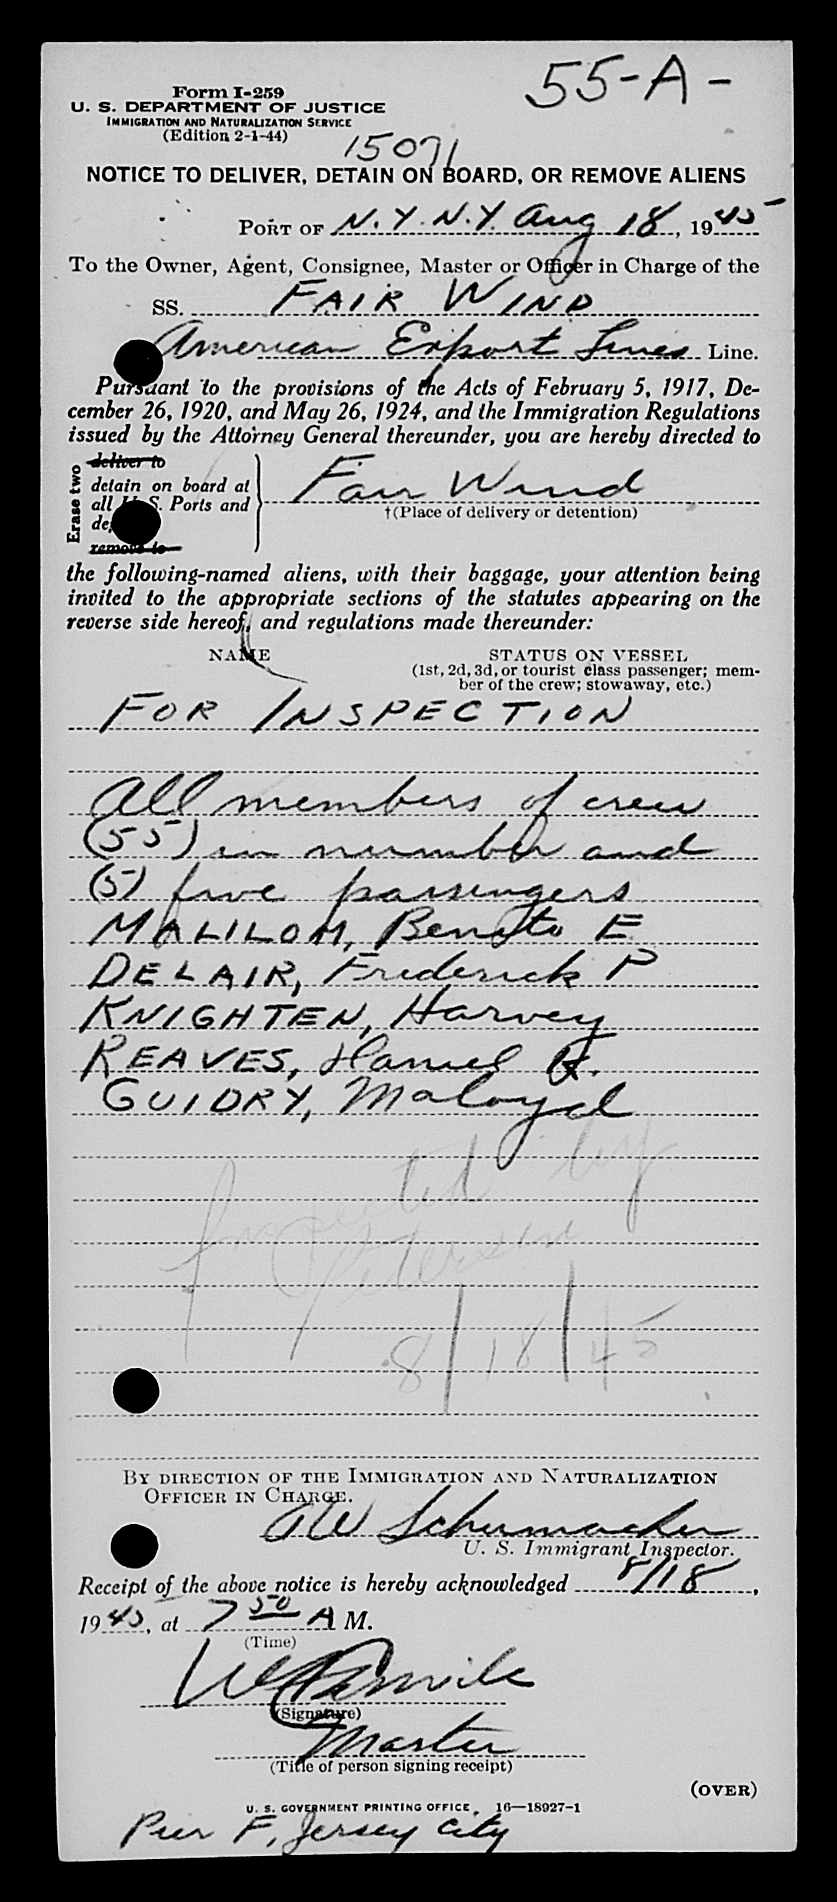 55-A-
Form I-259
U. S. DEPARTMENT OF JUSTICE
IMMIGRATION AND NATURALIZATION SERVICE
(Edition 2-1-44)
15071
NOTICE TO DELIVER, DETAIN ON BOARD, OR REMOVE ALIENS
PORT OF N.Y. N.Y. Aug 18, 1945
To the Owner, Agent, Consignee, Master or Officer in Charge of the
SS. FAIR WIND
American Export Lines Line.
Pursuant to the provisions of the Acts of February 5, 1917, De-
cember 26, 1920, and May 26, 1924, and the Immigration Regulations
issued by the Attorney General thereunder, you are hereby directed to
Erase two
deliver to
detain on board at
all U. S. Ports and
remove to
Fair Wind
†(Place of delivery or detention)
the following-named aliens, with their baggage, your attention being
invited to the appropriate sections of the statutes appearing on the
reverse side hereof, and regulations made thereunder:
NAME STATUS ON VESSEL
(1st, 2d, 3d, or tourist class passenger; mem-
ber of the crew; stowaway, etc.)
FOR INSPECTION
All members of crew
(55) in number and
(5) five passengers
MALILOM, Benito E
DELAIR, Frederick P
KNIGHTEN, Harvey
REAVES, Haniel
GUIDRY, Maloyd
Inspected by
Petersen
8/18/45
BY DIRECTION OF THE IMMIGRATION AND NATURALIZATION
OFFICER IN CHARGE.
Schumacher
U. S. Immigrant Inspector.
Receipt of the above notice is hereby acknowledged 8/18,
1945, at 7 50 A M.
(Time)
(Signature)
Master
(Title of person signing receipt)
(OVER)
U. S. GOVERNMENT PRINTING OFFICE 16—18927-1
Pier F, Jersey City